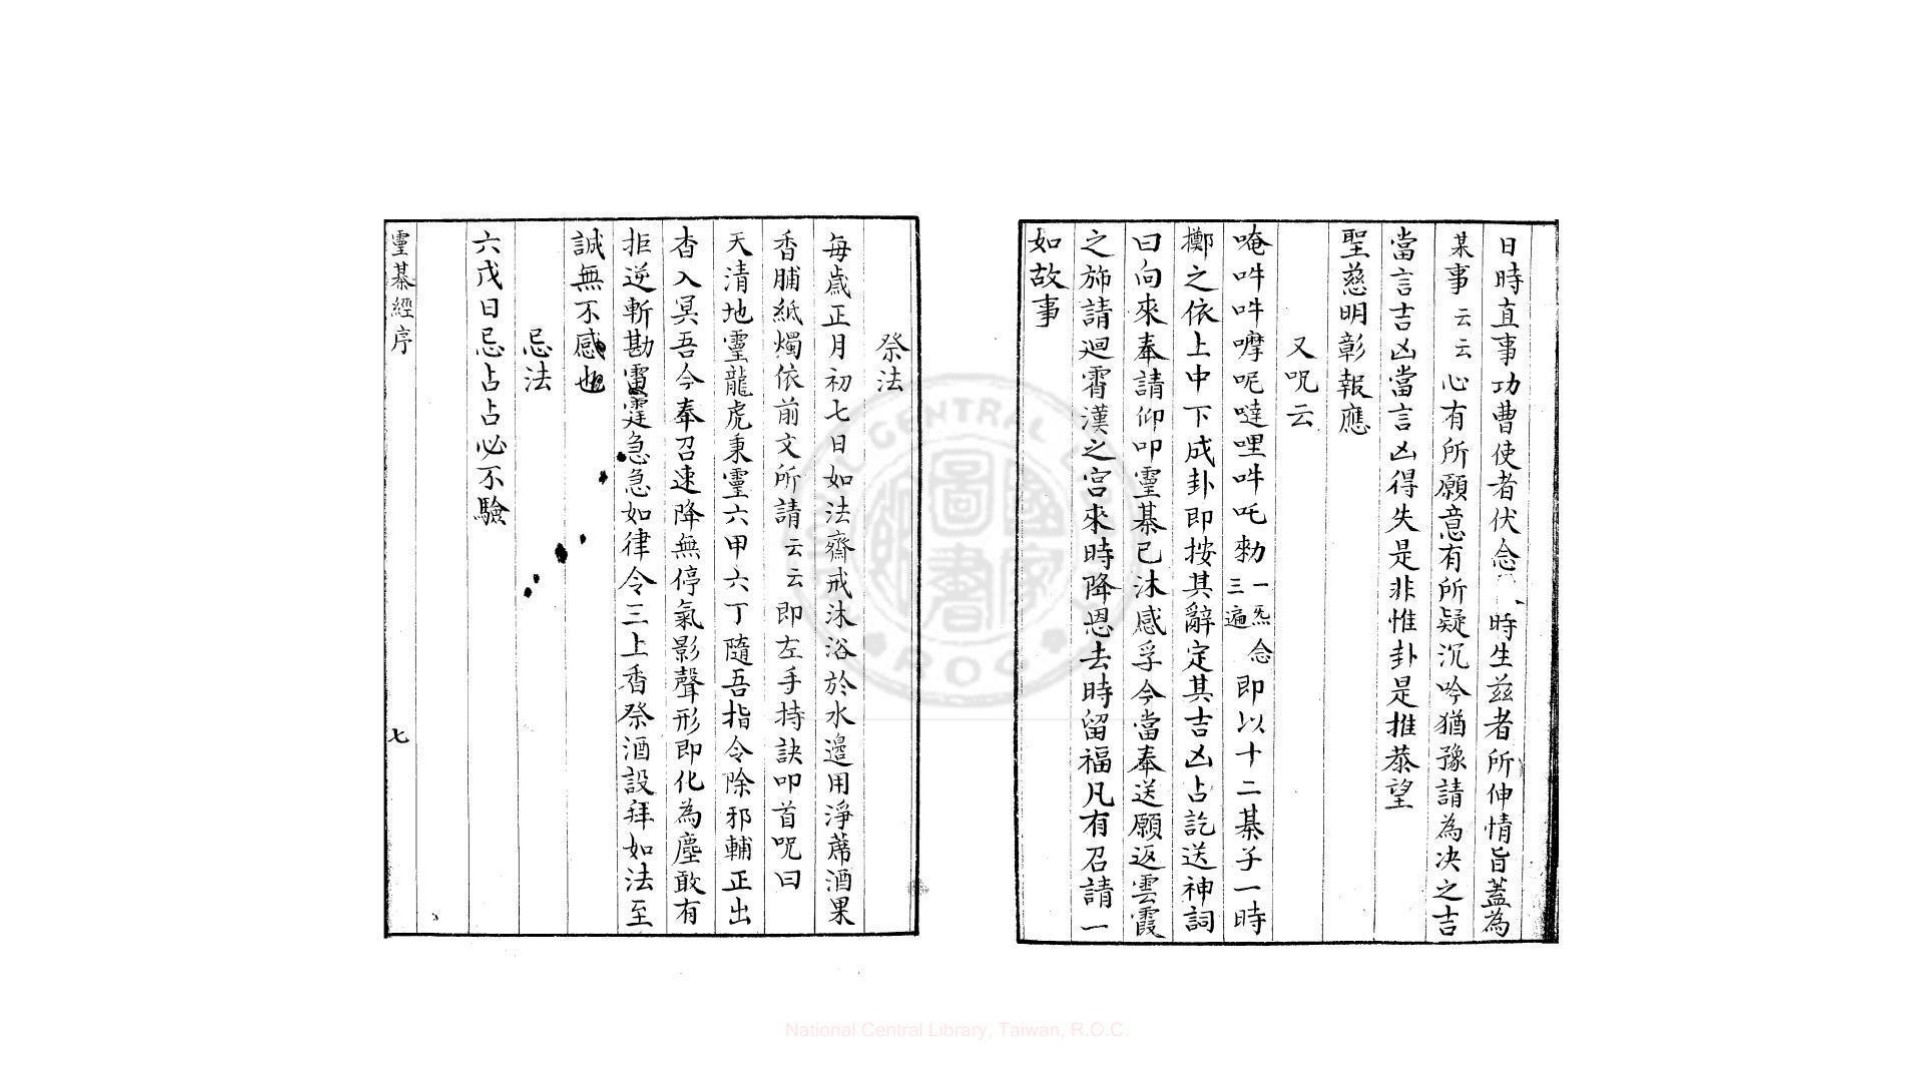 日時直事功曹使者伏念 時生兹者所伸情旨蓋為
某事云云心有所願意有所疑沉吟猶豫請為决之吉
當言吉凶當言凶得失是非惟卦是推恭望
聖慈明彰報應
又呪云
唵吽吽嚤呢噠哩吽吒勑一炁三遍念即以十二棊子一時
擲之依上中下成卦即按其辭定其吉凶占訖送神詞
曰向來奉請仰叩靈棊已沐感孚今當奉送願返雲霞
之斾請廻霄漢之宫來時降恩去時留福凡有召請一
如故事
祭法
每歳正月初七日如法齋戒沐浴於水邉用淨蓆酒果
香脯紙燭依前文所請云云即左手持訣叩首呪曰
天清地靈龍虎秉靈六甲六丁隨吾指令除邪輔正出
杳入冥吾今奉召速降無停氣影聲形即化為塵敢有
拒逆斬勘雷霆急急如律令三上香祭酒設拜如法至
誠無不感也
忌法
六戊日忌占占必不驗
靈棊經序
七
National Central Library, Taiwan, R.O.C.